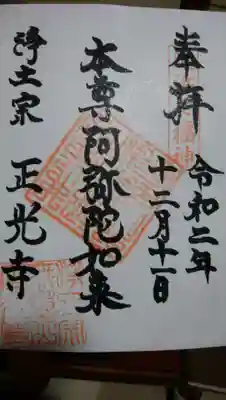 奉拝
令和二年
十二月十一日
本尊阿弥陀如来
浄土宗
正光寺